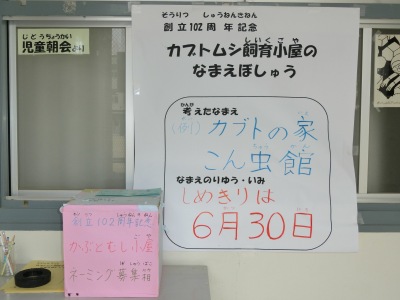 じどうちょうかい
児童朝会より
そうりつ しゅうねんきねん
創立102周年記念
しいくごや
カブトムシ飼育小屋の
なまえぼしゅう
かんが
考えたなまえ
(例) カブトの家
こん虫館
なまえのりゆう・いみ
しめきりは
6月30日
創立102周年記念
かぶとむし小屋
ネーミング募集箱